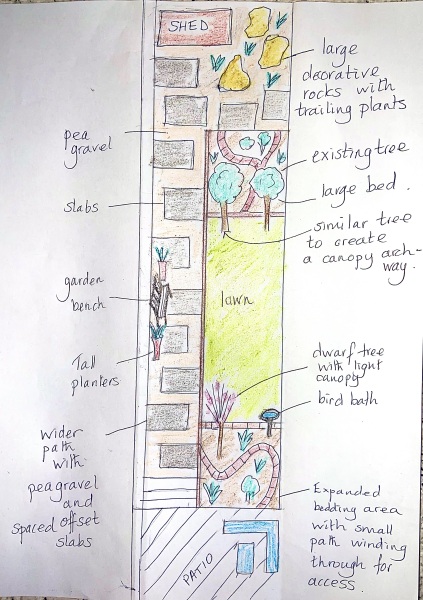 SHED
large
decorative
rocks with
trailing plants
pea
gravel
existing tree
large bed.
slabs
similar tree
to create
a canopy arch-
way.
garden
bench
lawn
Tall
planters
dwarf tree
with light
canopy
bird bath
wider
path
with
pea gravel
and
spaced offset
slabs
Expanded
bedding area
with small
path winding
through for
access.
PATIO